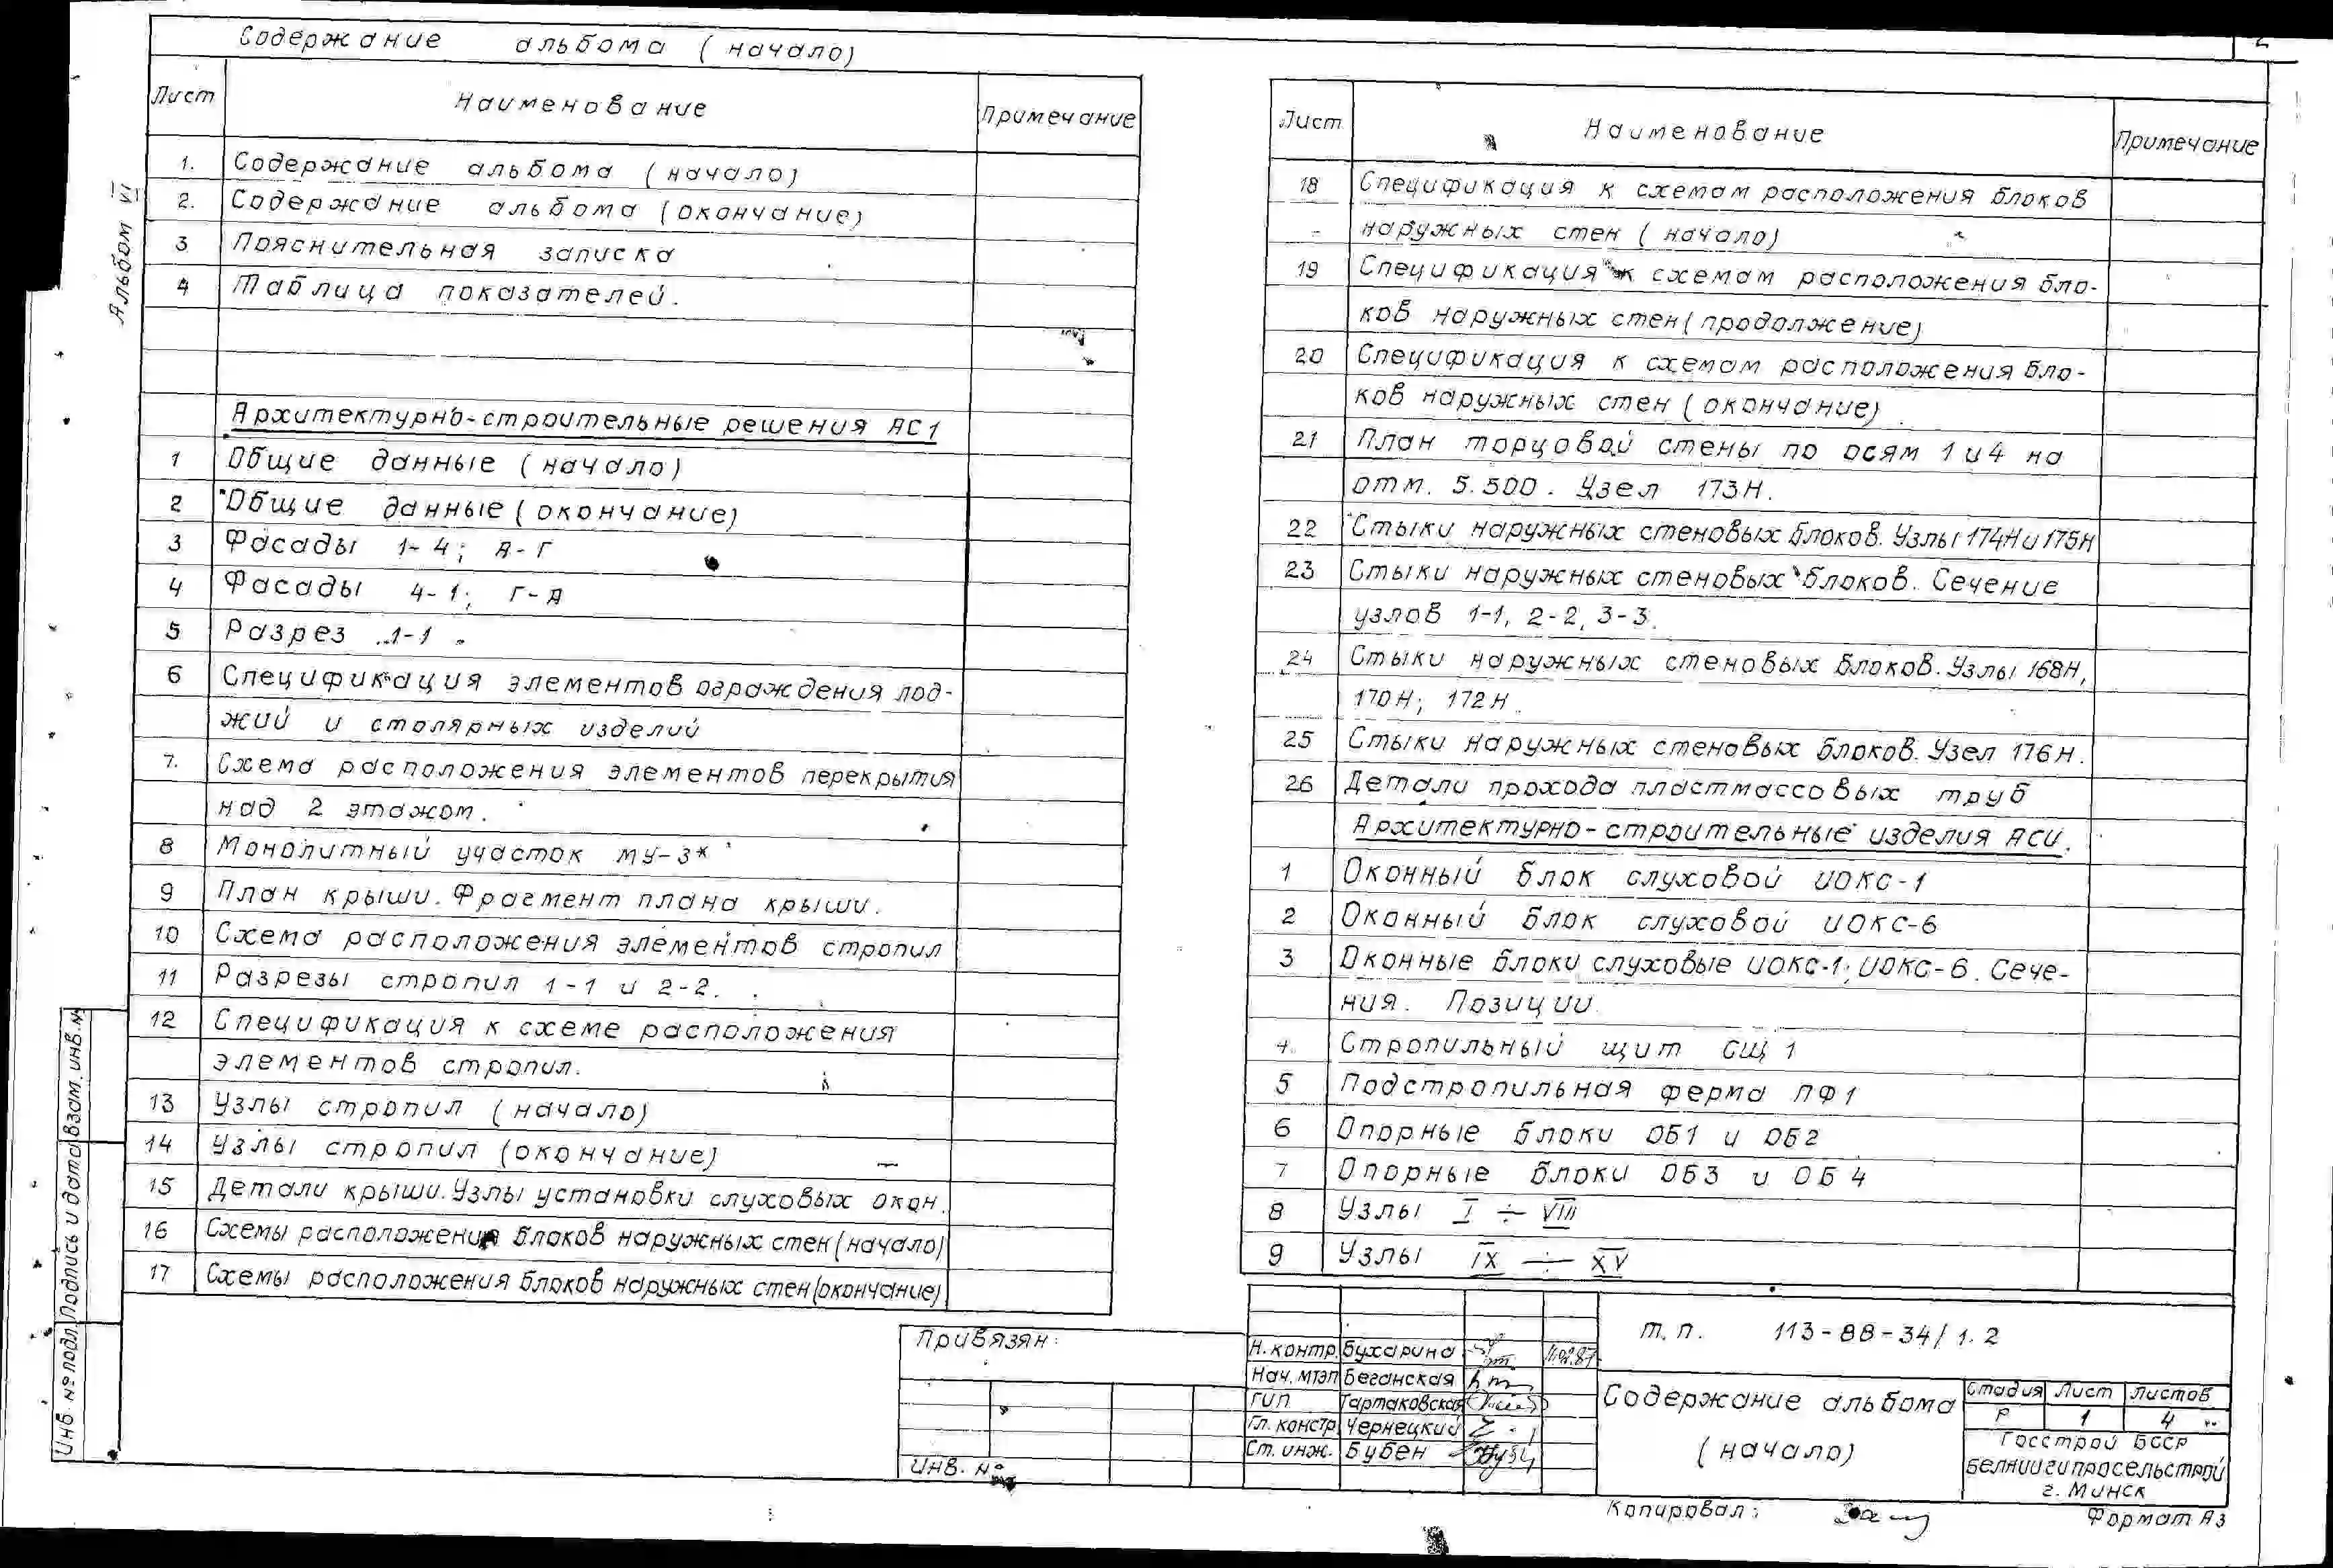 2
Содержание альбома (начало)
Альбом VI
Лист Наименование Примечание
1. Содержание альбома (начало)
2. Содержание альбома (окончание)
3 Пояснительная записка
4 Таблица показателей.
Архитектурно-строительные решения АС1
1 Общие данные (начало)
2 Общие данные (окончание)
3 Фасады 1-4; А-Г
4 Фасады 4-1; Г-А
5 Разрез 1-1
6 Спецификация элементов ограждения лод-
жий и столярных изделий
7. Схема расположения элементов перекрытия
над 2 этажом.
8 Монолитный участок МУ-3*
9 План крыши. Фрагмент плана крыши.
10 Схема расположения элементов стропил
11 Разрезы стропил 1-1 и 2-2.
12 Спецификация к схеме расположения
элементов стропил.
13 Узлы стропил (начало)
14 Узлы стропил (окончание)
15 Детали крыши. Узлы установки слуховых окон.
16 Схемы расположения блоков наружных стен (начало)
17 Схемы расположения блоков наружных стен (окончание)
Лист Наименование Примечание
18 Спецификация к схемам расположения блоков
наружных стен (начало)
19 Спецификация к схемам расположения бло-
ков наружных стен (продолжение)
20 Спецификация к схемам расположения бло-
ков наружных стен (окончание)
21 План торцовой стены по осям 1 и 4 на
отм. 5.500. Узел 173Н.
22 Стыки наружных стеновых блоков. Узлы 174Н и 175Н
23 Стыки наружных стеновых блоков. Сечение
узлов 1-1, 2-2, 3-3.
24 Стыки наружных стеновых блоков. Узлы 168Н,
170Н; 172Н.
25 Стыки наружных стеновых блоков. Узел 176Н.
26 Детали прохода пластмассовых труб
Архитектурно-строительные изделия АСИ.
1 Оконный блок слуховой ИОКС-1
2 Оконный блок слуховой ИОКС-6
3 Оконные блоки слуховые ИОКС-1; ИОКС-6. Сече-
ния. Позиции
4. Стропильный щит СЩ 1
5 Подстропильная ферма ПФ1
6 Опорные блоки ОБ1 и ОБ2
7 Опорные блоки ОБ3 и ОБ4
8 Узлы I ÷ VIII
9 Узлы IX ÷ XV
Взам. инв. №
Подпись и дата
Инв. № подл.
Привязан:
Инв. №
Н. контр. Бухарина
Нач. МТЭП Беганская
ГИП Тартаковская
Гл. констр. Чернецкий
Ст. инж. Бубен
Т. п. 113-88-34/1.2
Содержание альбома
(начало)
Стадия Лист Листов
Р 1 4
Госстрой БССР
БЕЛНИИГИПРОСЕЛЬСТРОЙ
г. Минск
Копировал:
Формат А3